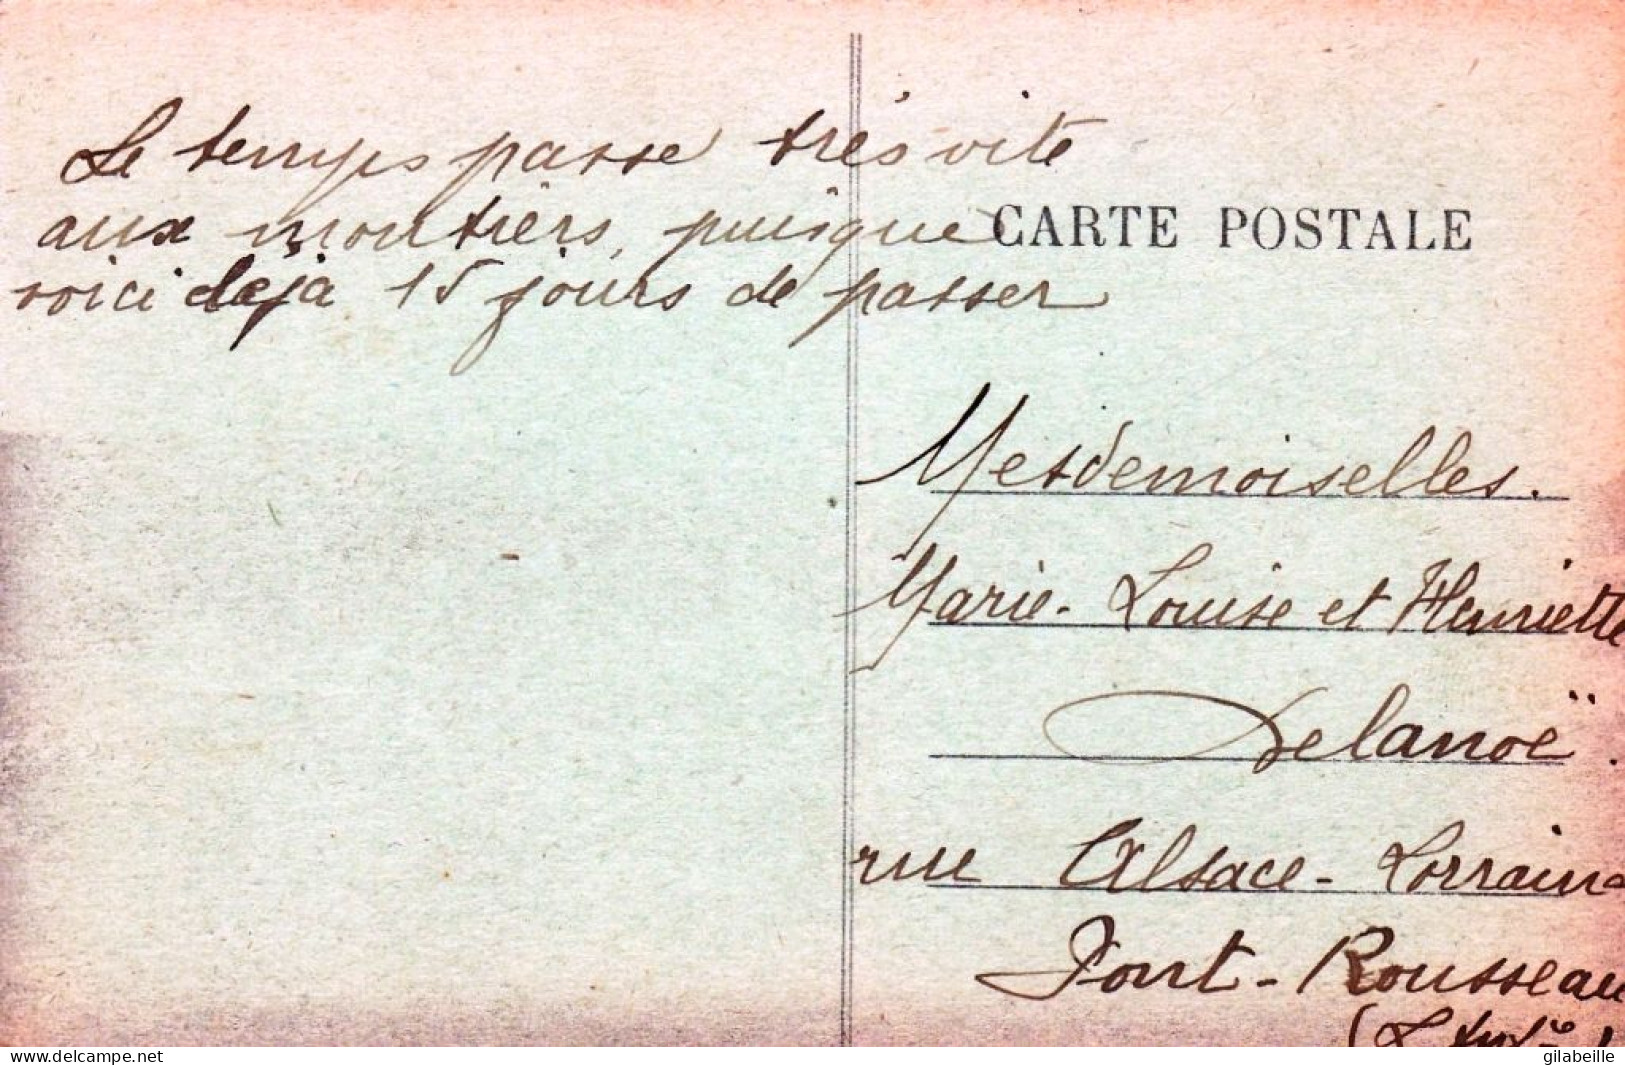 Le temps passe très vite
aux moutiers, puisque
voici deja 15 jours de passer
CARTE POSTALE
Mesdemoiselles.
Marie-Louise et Henriette
Delanoë.
rue Alsace-Lorraine
Pont-Rousseau
(L
gilabeille